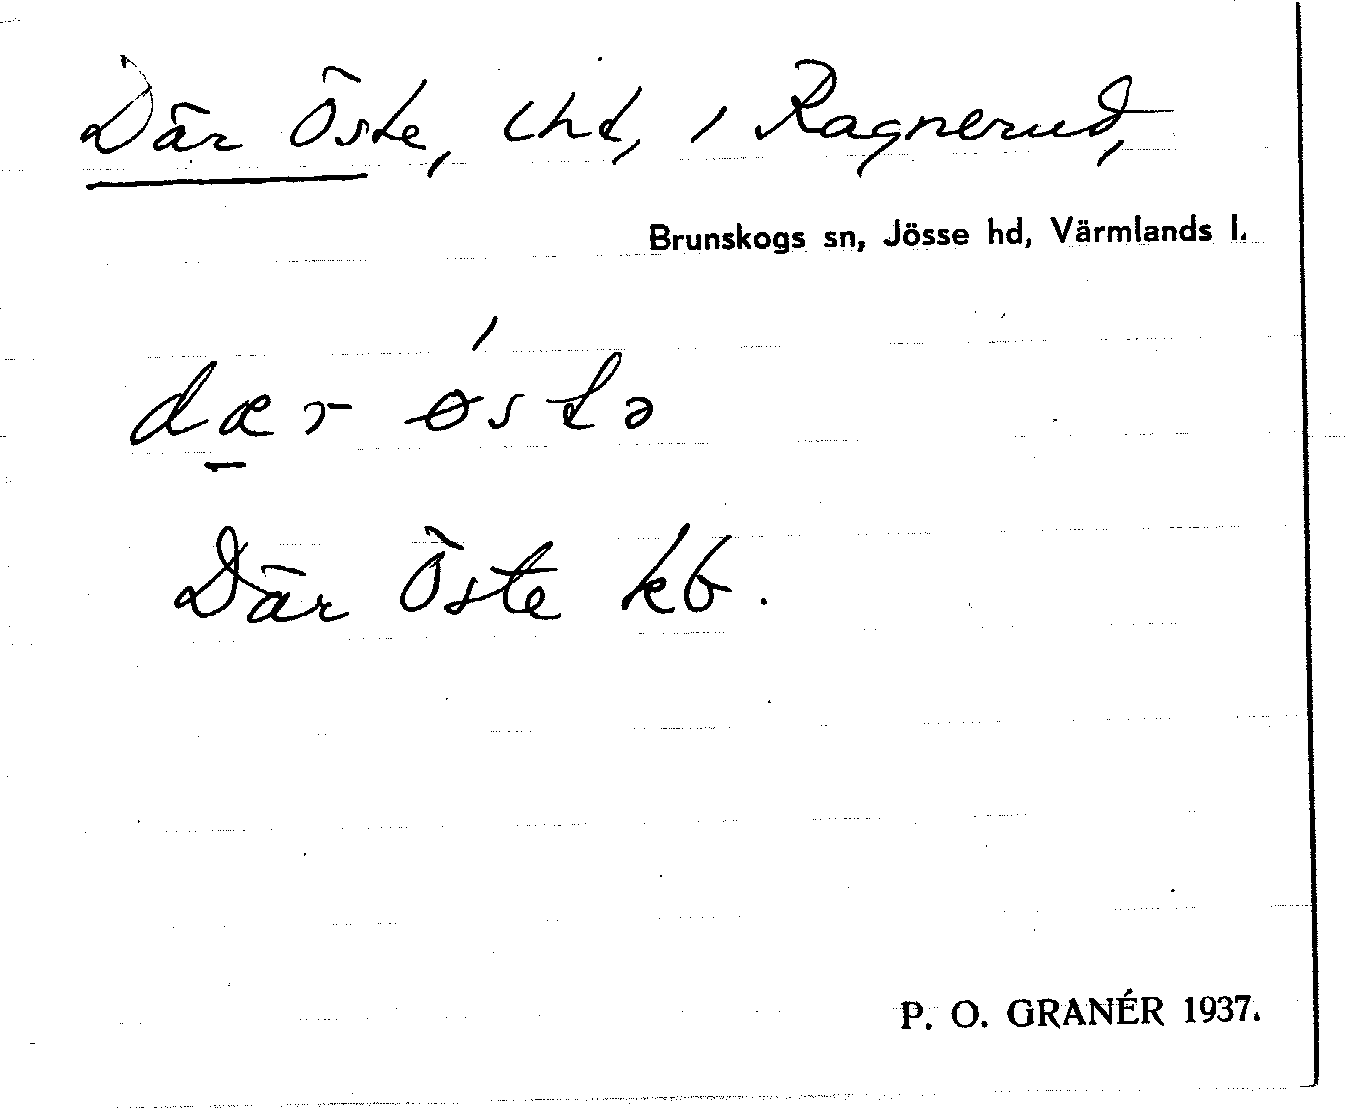 Där Öste, lht, i Ragnerud,
Brunskogs sn, Jösse hd, Värmlands l.
dær østə
Där Öste kb.
P. O. GRANÉR 1937.